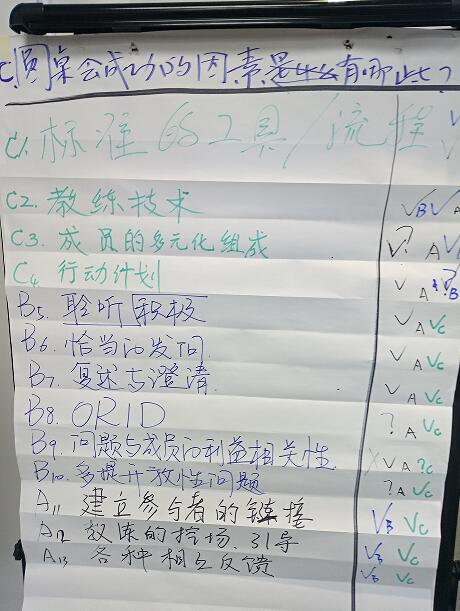 C.圆桌会成功的因素是什么有哪些?
C1.标准GS工具/流程 V
C2.教练技术 VB V A
C3.成员的多元化组成 V? A V
C4 行动计划 V A ? B
B5.聆听 积极 V A VC
B6.恰当的发问. V A VC
B7.复述与澄清. V A VC
B8.ORID ? A VC
B9.问题与成员的利益相关性 V A ?C
B10.多提开放性问题 ? A VC
A11 建立参与者的链接 VB VC
A12 教练的控场.引导 VB VC
A13 各种相互反馈 VB VC